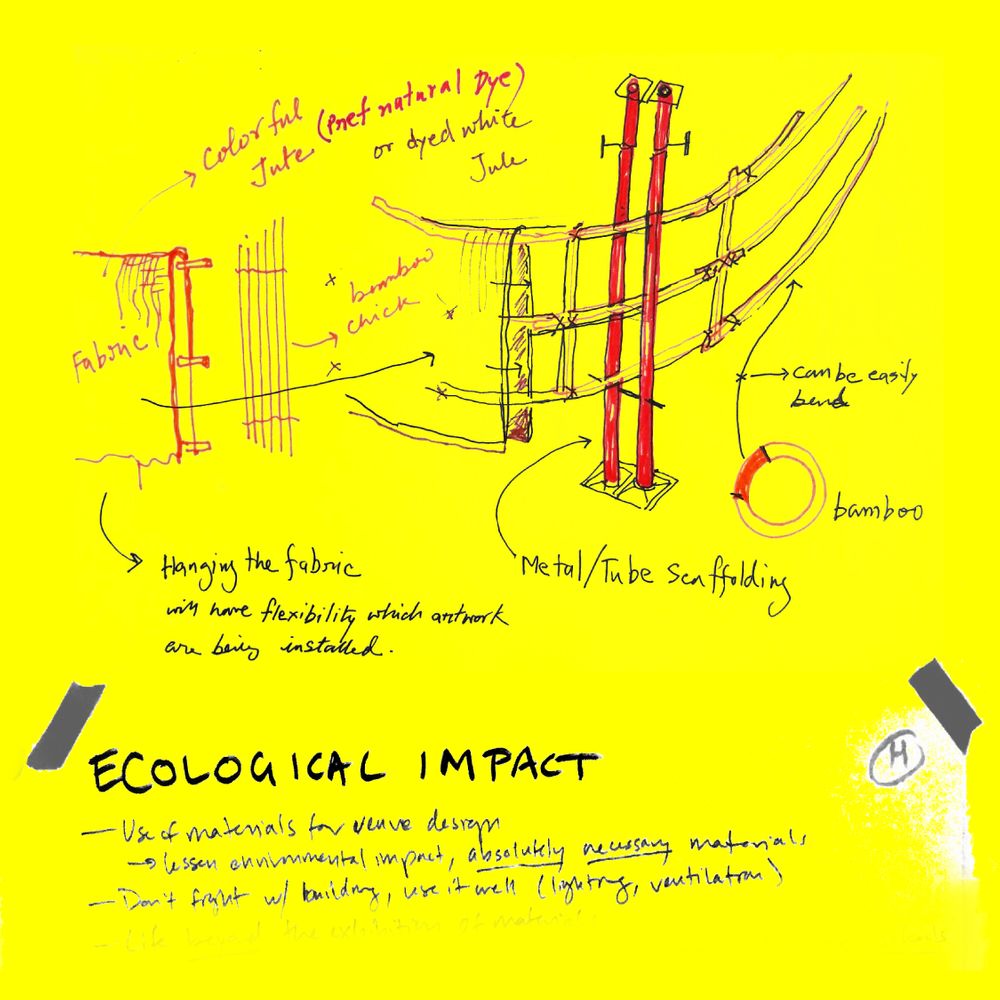 Colorful
Jute (Pref natural Dye)
or dyed white
Jute
Fabric
bamboo
chick
can be easily
bend
bamboo
Metal/Tube Scaffolding
Hanging the fabric
will have flexibility which artwork
are being installed.
H
ECOLOGICAL IMPACT
— Use of materials for venue design
→ lessen environmental impact, absolutely necessary materials
— Don't fight w/ building, use it well (lighting, ventilation)
— Life beyond the exhibition of materials